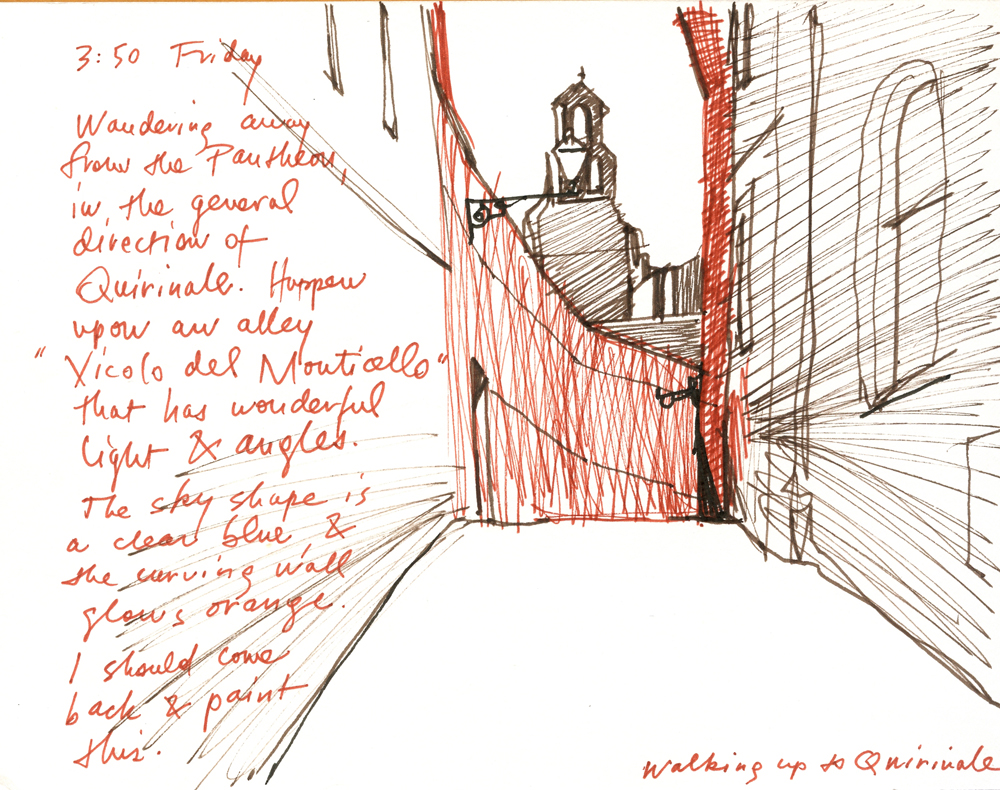 3:50 Friday
Wandering away
from the Pantheon,
in the general
direction of
Quirinale. Happen
upon an alley
"Vicolo del Monticello"
that has wonderful
light & angles.
The sky shape is
a clear blue &
the curving wall
glows orange.
I should come
back & paint
this.
Walking up to Quirinale